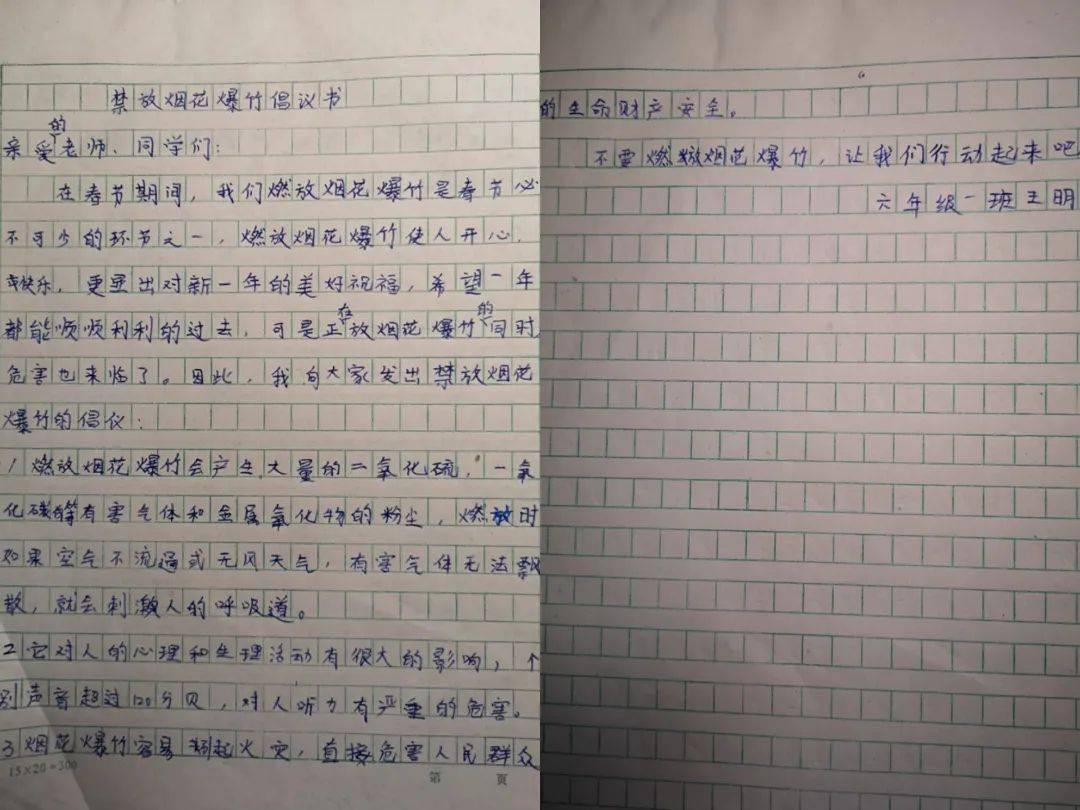 禁放烟花爆竹倡议书
亲爱的老师、同学们:
在春节期间,我们燃放烟花爆竹是春节必
不可少的环节之一,燃放烟花爆竹使人开心、
快乐,更显出对新一年的美好祝福,希望一年
都能顺顺利利的过去,可是正在放烟花爆竹的同时
危害也来临了。因此,我向大家发出禁放烟花
爆竹的倡仪:
1燃放烟花爆竹会产生大量的二氧化硫,一氧
化碳等有害气体和金属氧化物的粉尘,燃放时
如果空气不流通或无风天气,有害气体无法飘
散,就会刺激人的呼吸道。
2它对人的心理和生理活动有很大的影响,个
别声音超过120分贝,对人听力有严重的危害。
3烟花爆竹容易起火灾,直接危害人民群众
15×20=300
第 页
的生命财产安全。
不要燃放烟花爆竹,让我们行动起来吧
六年级一班王明